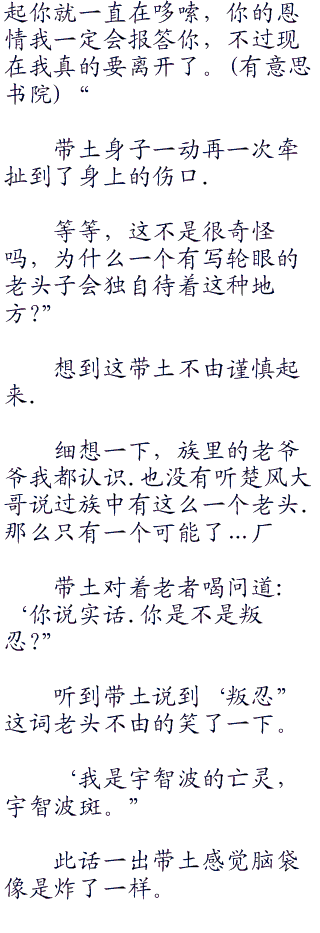 起你就一直在哆嗦，你的恩
情我一定会报答你，不过现
在我真的要离开了。(有意思
书院) “
带土身子一动再一次牵
扯到了身上的伤口.
等等，这不是很奇怪
吗，为什么一个有写轮眼的
老头子会独自待着这种地
方?”
想到这带土不由谨慎起
来.
细想一下，族里的老爷
爷我都认识.也没有听楚风大
哥说过族中有这么一个老头.
那么只有一个可能了...厂
带土对着老者喝问道:
‘你说实话.你是不是叛
忍?”
听到带土说到‘叛忍”
这词老头不由的笑了一下。
‘我是宇智波的亡灵，
宇智波斑。”
此话一出带土感觉脑袋
像是炸了一样。